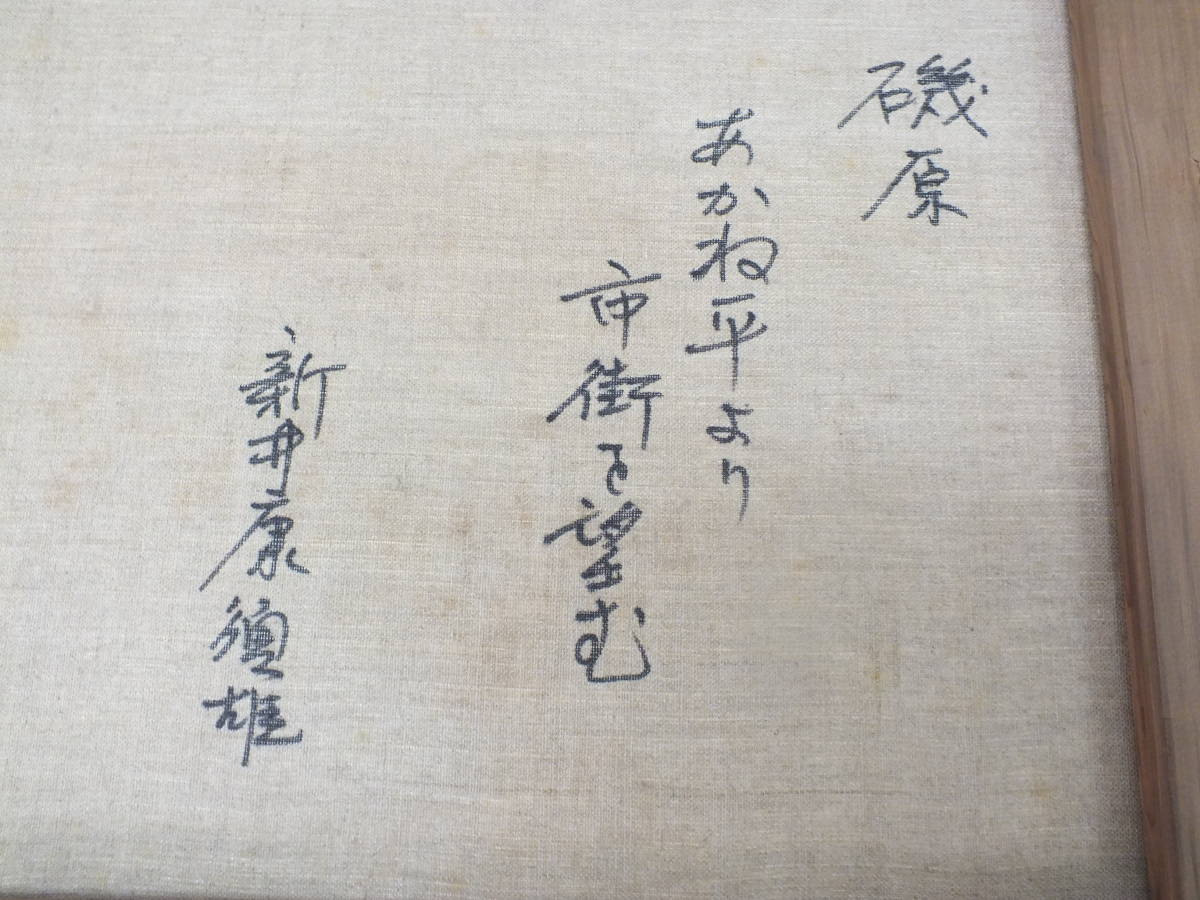 磯原
あかね平より
市街を望む
新井康須雄